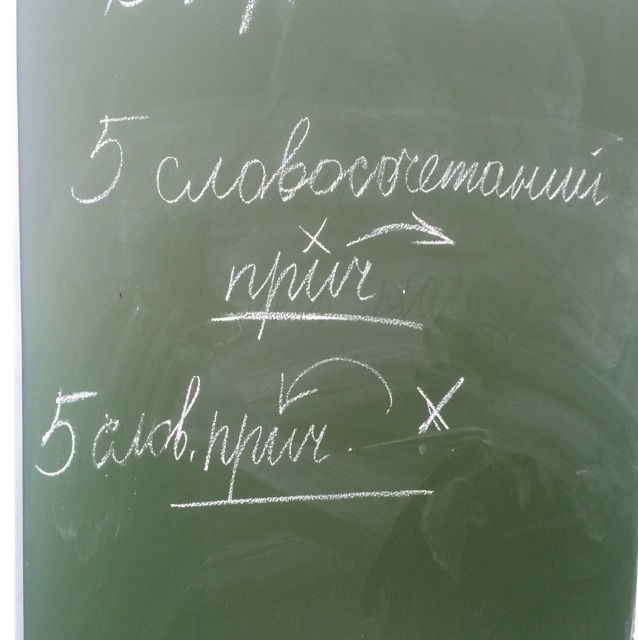 5 словосочетаний
х
прич.
5 слов. прич. х